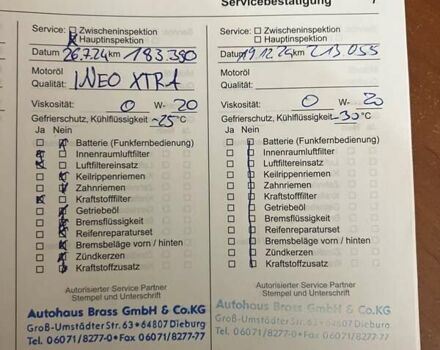 Servicebestätigung 7
Service: Zwischeninspektion
Hauptinspektion
Datum 26.7.24 km 183.380
Motoröl
Qualität: INEO XTRA
Viskosität: 0 W- 20
Gefrierschutz, Kühlflüssigkeit -25 °C
Ja Nein
Batterie (Funkfernbedienung)
Innenraumluftfilter
Luftfiltereinsatz
Keilrippenriemen
Zahnriemen
Kraftstofffilter
Getriebeöl
Bremsflüssigkeit
Reifenreparaturset
Bremsbeläge vorn / hinten
Zündkerzen
Kraftstoffzusatz
Autorisierter Service Partner
Stempel und Unterschrift
Autohaus Brass GmbH & Co.KG
Groß-Umstädter Str. 63 * 64807 Dieburg
Tel. 06071/8277-0 * Fax 06071/8277-77
Service: Zwischeninspektion
Hauptinspektion
Datum 19.12.24 km 213.055
Motoröl
Qualität:
Viskosität: 0 W- 20
Gefrierschutz, Kühlflüssigkeit -30 °C
Ja Nein
Batterie (Funkfernbedienung)
Innenraumluftfilter
Luftfiltereinsatz
Keilrippenriemen
Zahnriemen
Kraftstofffilter
Getriebeöl
Bremsflüssigkeit
Reifenreparaturset
Bremsbeläge vorn / hinten
Zündkerzen
Kraftstoffzusatz
Autorisierter Service Partner
Stempel und Unterschrift
Autohaus Brass GmbH & Co.KG
Groß-Umstädter Str. 63 * 64807 Dieburg
Tel. 06071/8277-0 * Fax 06071/8277-77